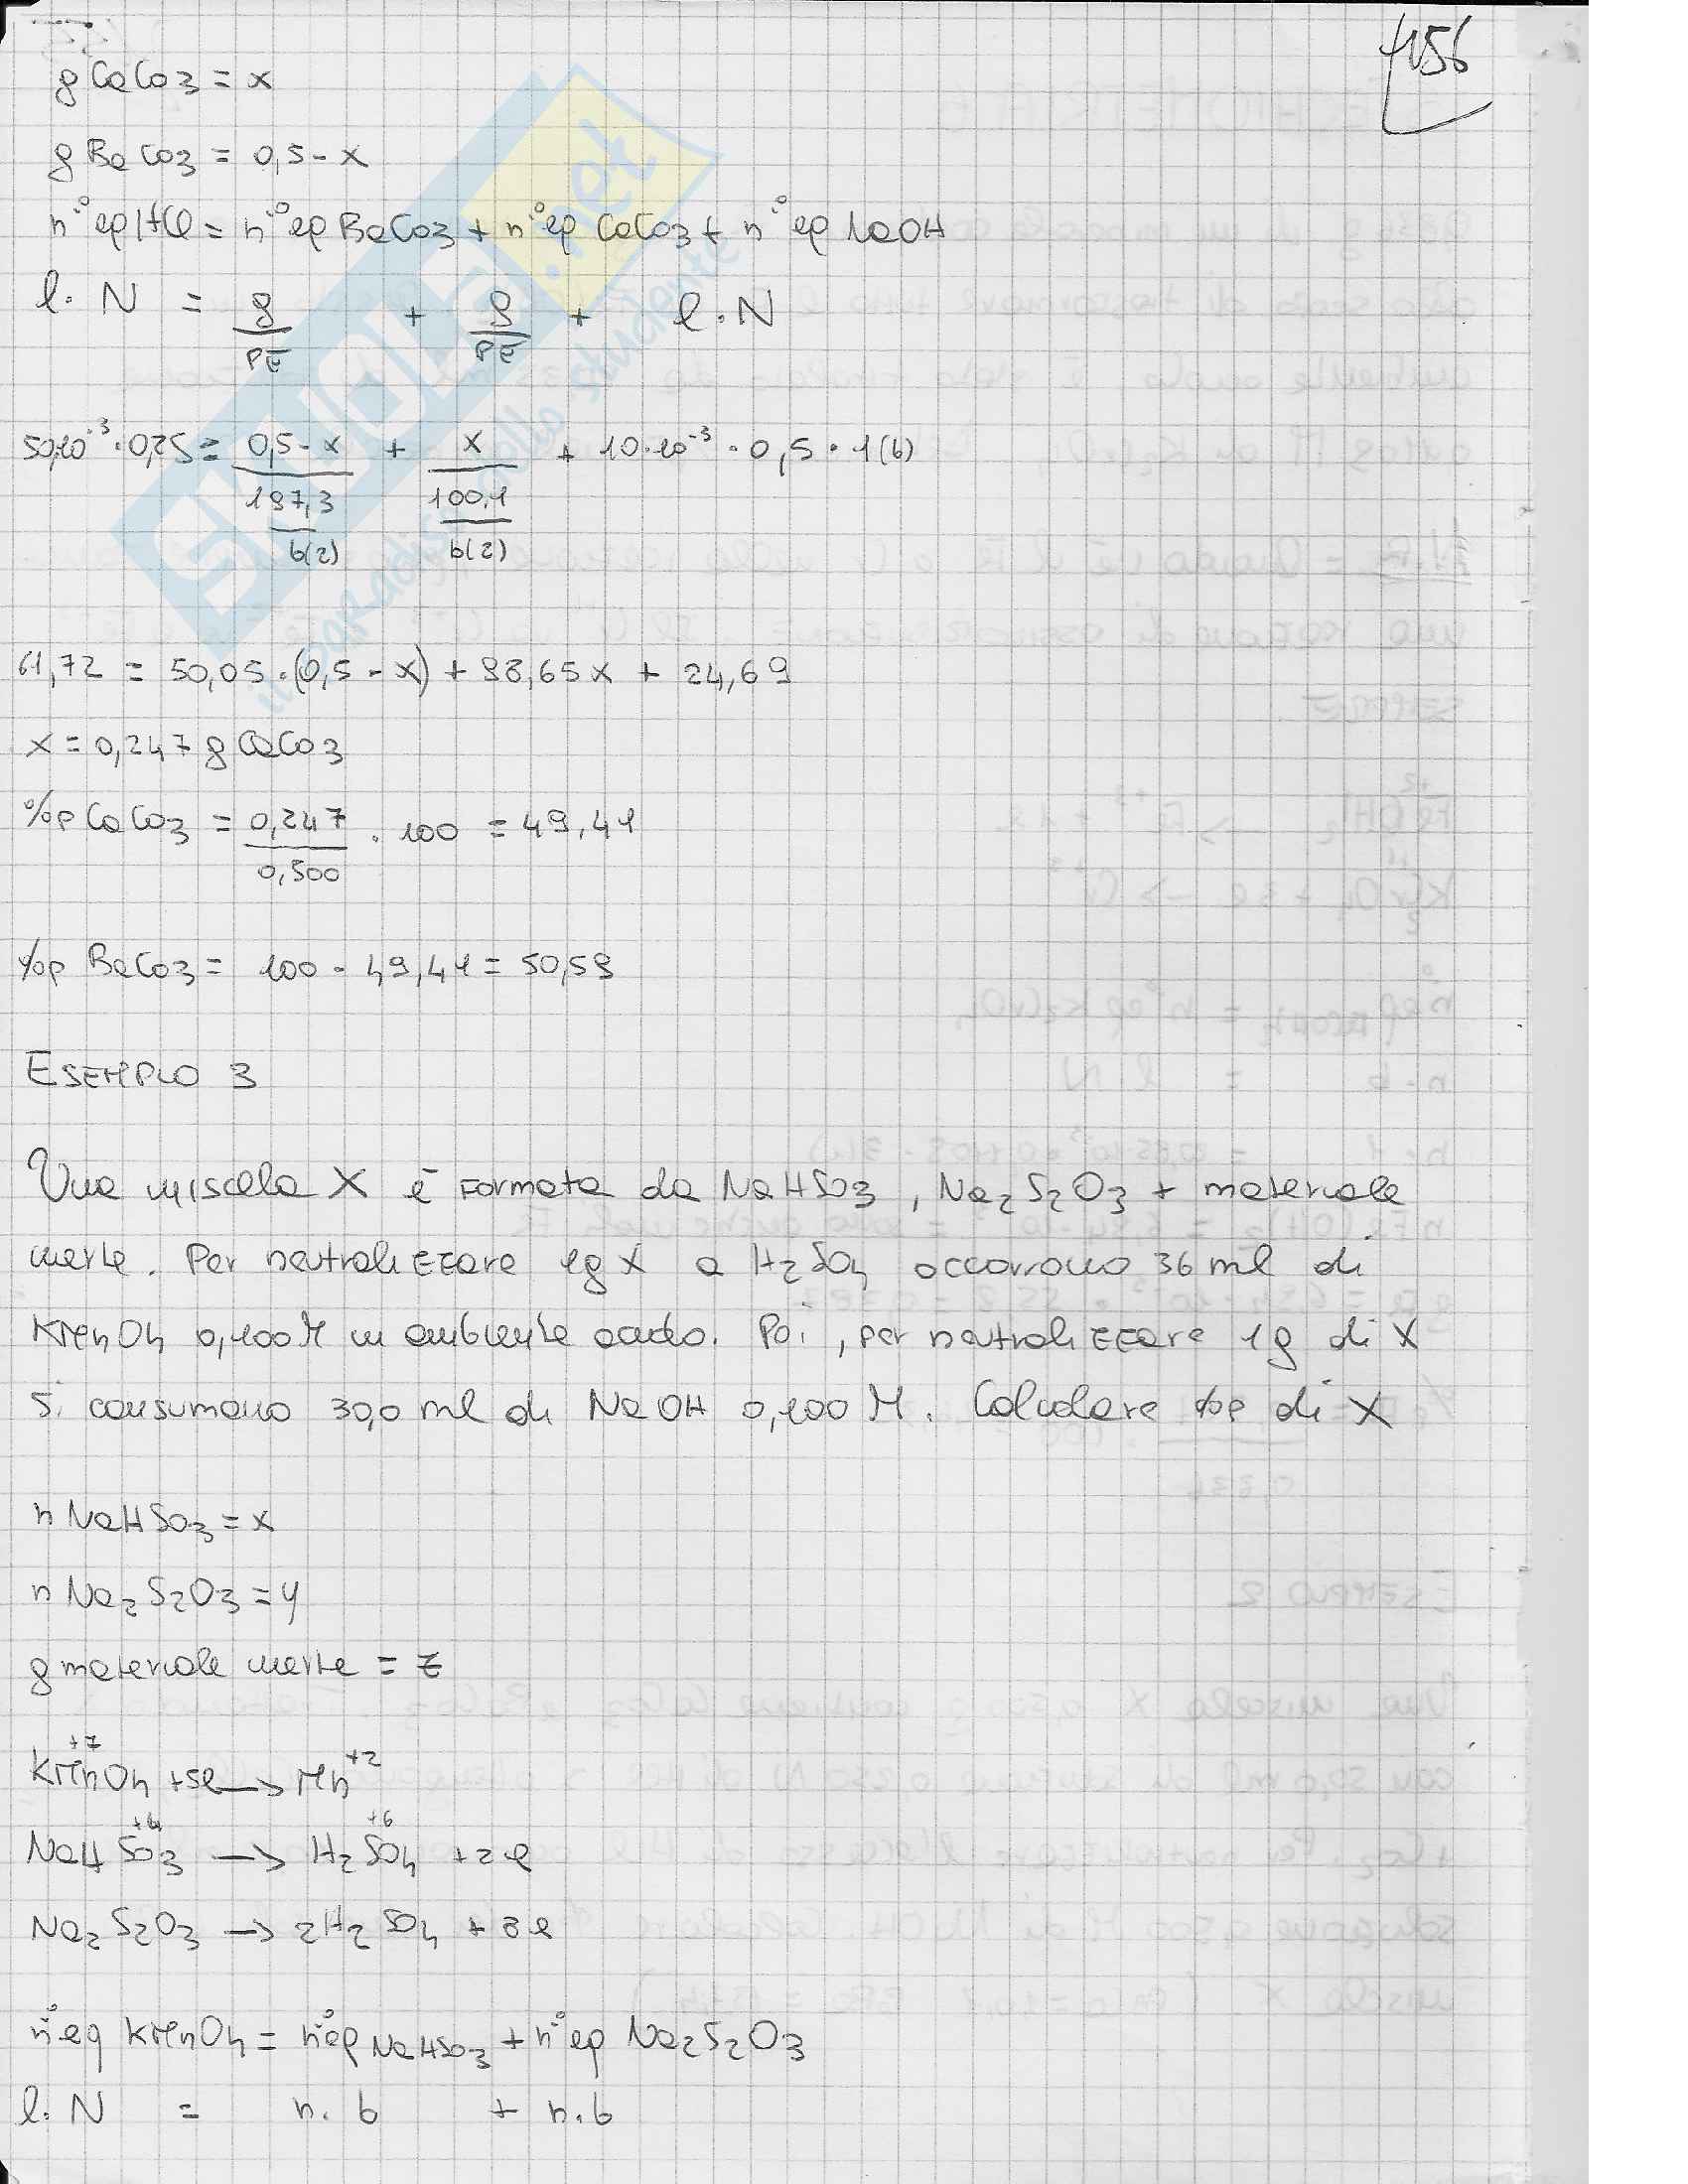 456
g CaCO3 = x
g BaCO3 = 0,5 - x
n°eq HCl = n°eq BaCO3 + n°eq CaCO3 + n°eq NaOH
l. N = g/PE + g/PE + l. N
50·10⁻³ · 0,25 = 0,5 - x / 197,3 / b(2) + x / 100,1 / b(2) + 10·10⁻³ · 0,5 · 1(b)
61,72 = 50,05 · (0,5 - x) + 98,65x + 24,69
x = 0,247 g CaCO3
%p CaCO3 = 0,247/0,500 · 100 = 49,41
%p BaCO3 = 100 - 49,41 = 50,59
ESEMPIO 3
Una miscela X è formata da NaHSO3, Na2S2O3 + materiale
inerte. Per neutralizzare 1g X a H2SO4 occorrono 36 ml di
KMnO4 0,100M in ambiente acido. Poi, per neutralizzare 1g di X
si consumano 30,0 ml di NaOH 0,100 M. Calcolare %p di X
n NaHSO3 = x
n Na2S2O3 = y
g materiale inerte = z
KMnO4 +5e → Mn⁺²
+7
NaHSO3 → H2SO4 + 2e
+4 +6
Na2S2O3 → 2H2SO4 + 8e
n°eq KMnO4 = n°eq NaHSO3 + n°eq Na2S2O3
l. N = n. b + n. b
SKUOLA.net
il paradiso dello studente